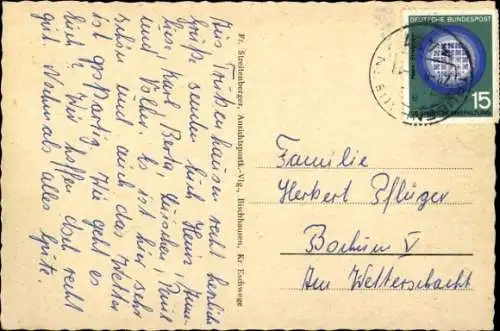 Aus Trubenhausen recht herzliche
Grüße senden Euch Heinz, Anne-
liese, Karl, Berta, Lieschen, Paul
und Volker. Es ist hier sehr
schön und auch das Wetter
ist großartig. Wie geht es
Euch? Wir hoffen doch recht
gut. Nochmals alles
Gute.
Fr. Streitenberger, Ansichtspostk.-Vlg., Bischhausen, Kr. Eschwege
DEUTSCHE BUNDESPOST
15
Familie
Herbert Pflüger
Bochum V
Am Wetterschacht